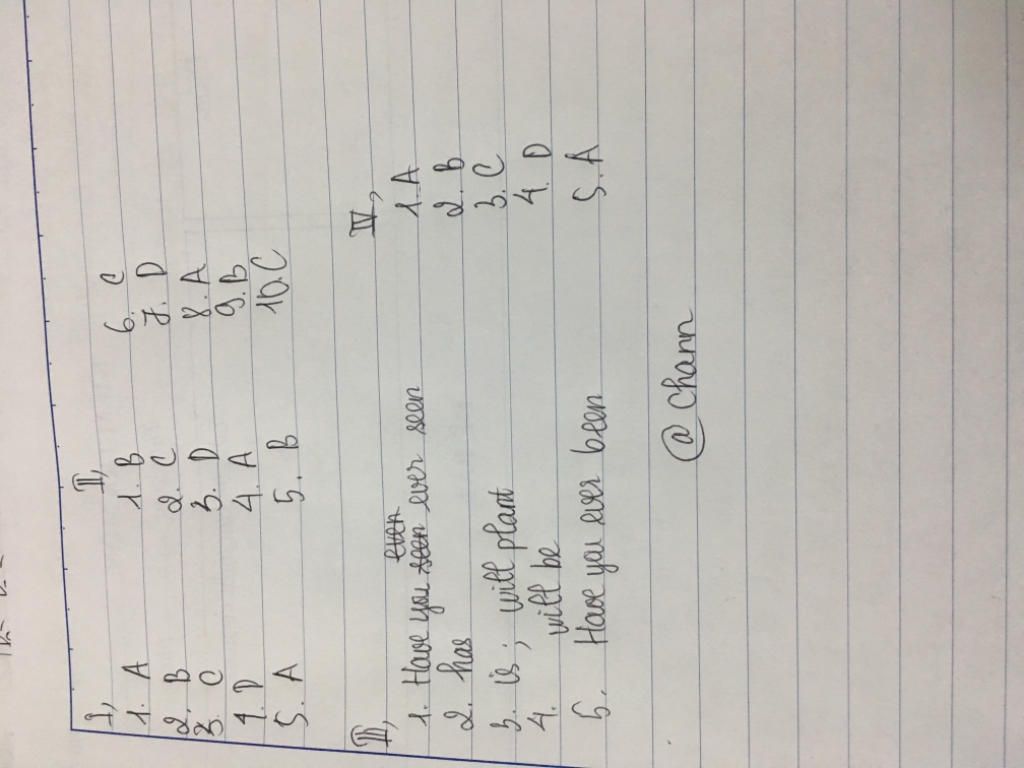 I,
1. A
2. B
3. C
4. D
5. A
II,
1. B
2. C
3. D
4. A
5. B
6. C
7. D
8. A
9. B
10. C
III,
1. Have you ever seen
2. has
3. is; will plant
4. will be
5. Have you ever been
IV,
1. A
2. B
3. C
4. D
5. A
@ Chann